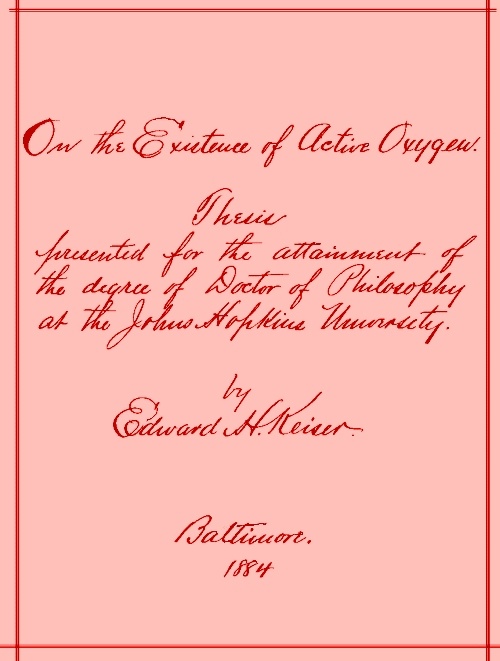 On the Existence of Active Oxygen.
Thesis
presented for the attainment of
the degree of Doctor of Philosophy
at the Johns Hopkins University.
by
Edward H. Keiser.
Baltimore.
1884